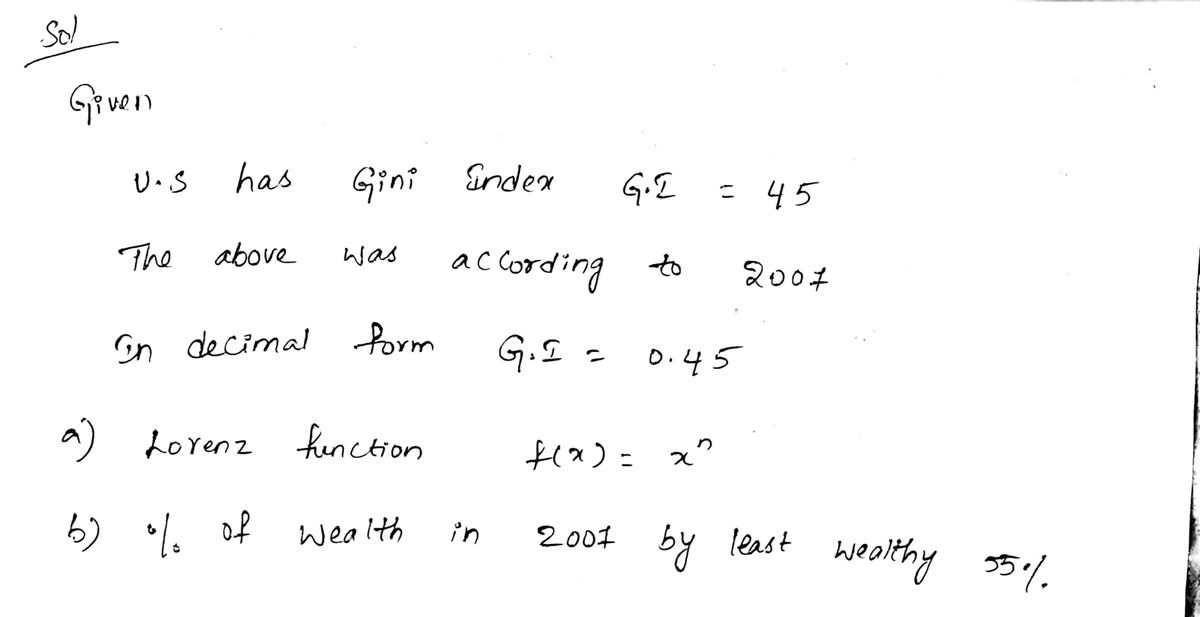 Sol
Given
U.S has Gini Index G.I = 45
The above was according to 2007
In decimal form G.I = 0.45
a) Lorenz function f(x) = xⁿ
b) % of wealth in 2007 by least wealthy 55%.